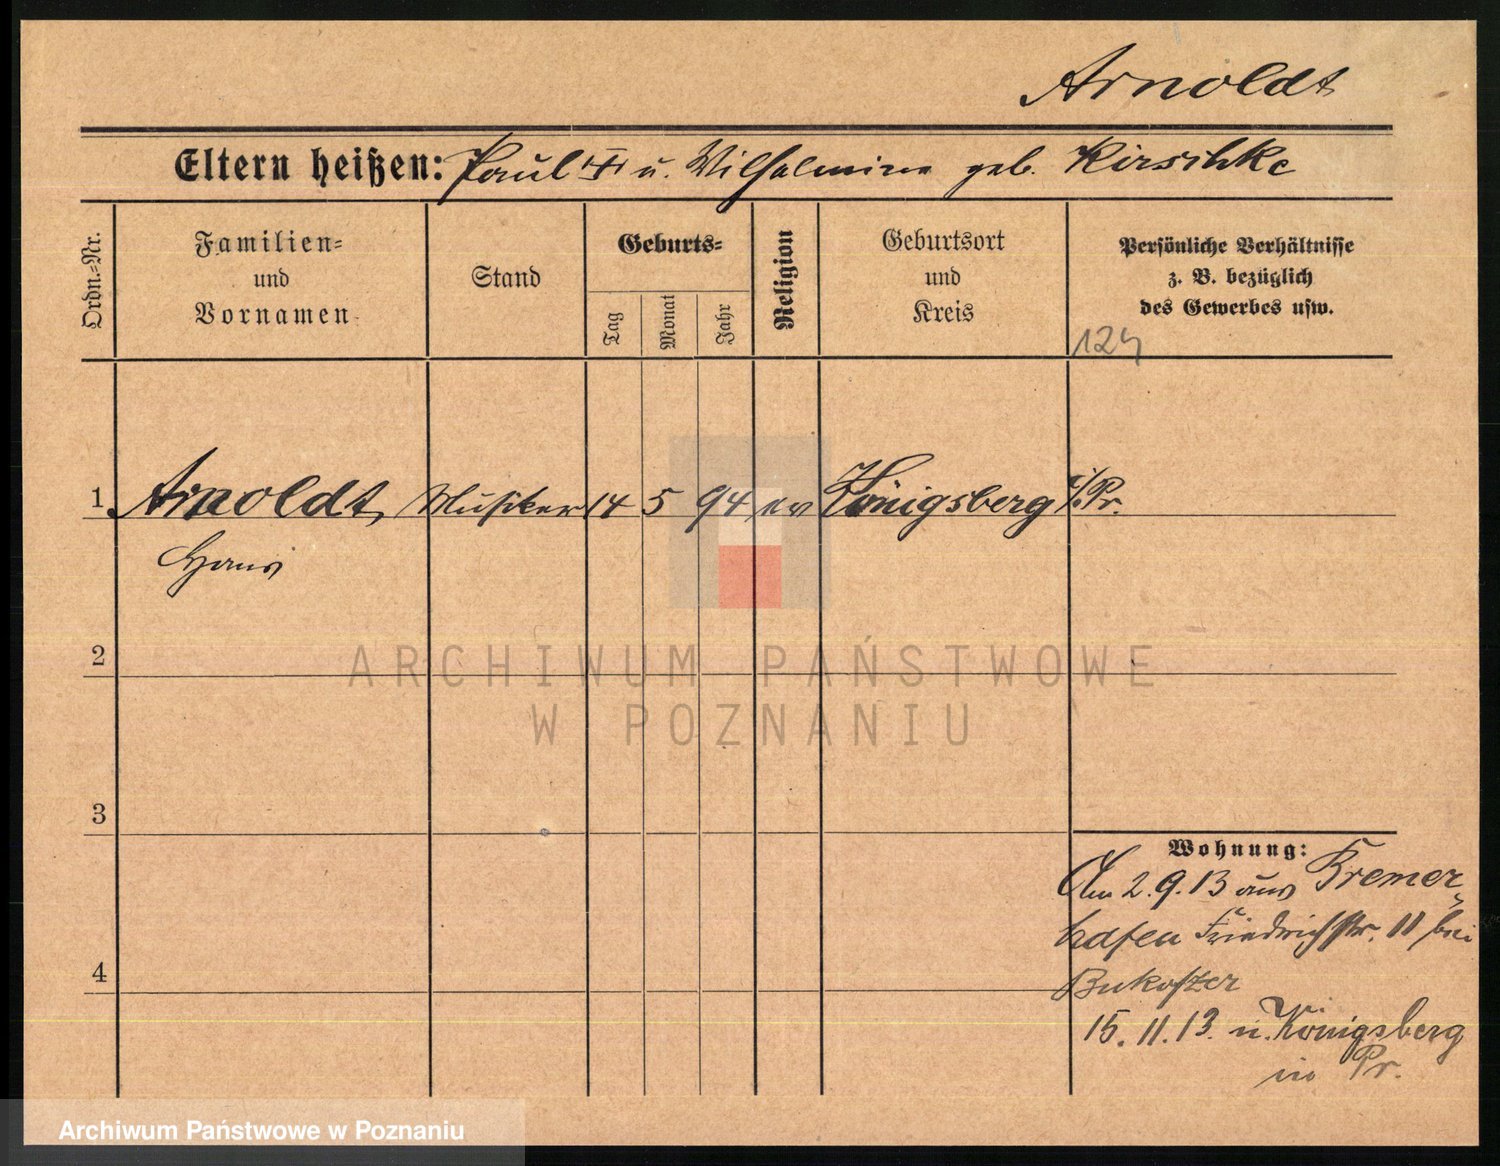 Arnoldt
Eltern heißen: Paul u. Wilhelmine geb. Kirschke
Ordn.-Nr.
Familien-
und
Vornamen
Stand
Geburts-
Tag
Monat
Jahr
Religion
Geburtsort
und
Kreis
Persönliche Verhältnisse
z. B. bezüglich
des Gewerbes usw.
124
1 Arnoldt, Musiker 14 5 94 ev Königsberg i/Pr.
Hans
2
ARCHIWUM PAŃSTWOWE
W POZNANIU
3
Wohnung:
Am 2.9.13 aus Bremer-
hafen Friedrichstr. 11 bei
4
15.11.13. n. Königsberg
in Pr.
Archiwum Państwowe w Poznaniu